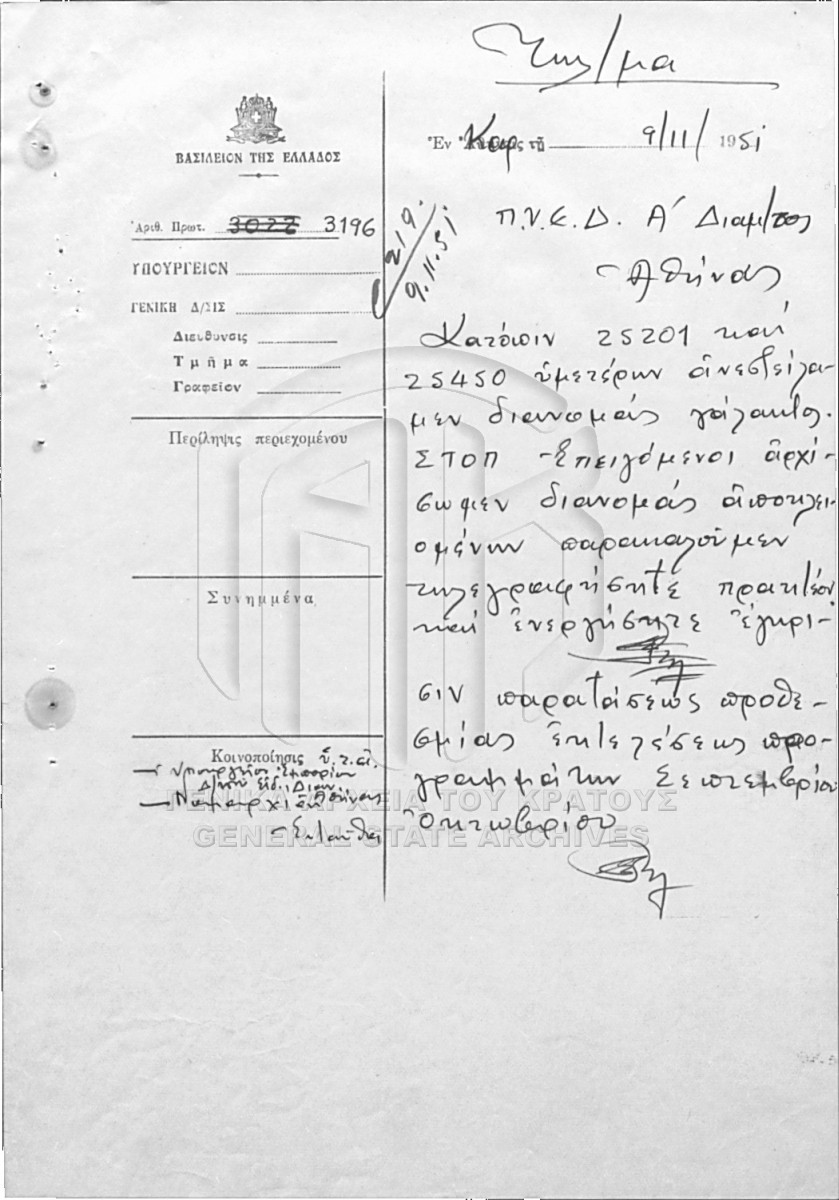 Τηλ/μα
ΒΑΣΙΛΕΙΟΝ ΤΗΣ ΕΛΛΑΔΟΣ
Ἐν Καρ τῇ 9/11/1951
Ἀριθ. Πρωτ. 3022 3196
219.
9.11.51
ΥΠΟΥΡΓΕΙΟΝ
ΓΕΝΙΚΗ Δ/ΣΙΣ
Διευθυνσις
Τμῆμα
Γραφεῖον
Περίληψις περιεχομένου
Συνημμένα
Κοινοποίησις ὑ.τ.α.
Ὑπουργεῖον Ἐμπορίου
Δ/νσιν Εἰδ. Διαν.
Νομαρχίαν
Ἐνταῦθα
Π.Υ.Ε.Δ. Α΄ Διαμ/τος
Ἀθήνας
Κατόπιν 25201 καί
25450 ὑμετέρων ἀνεστείλα-
μεν διανομάς γάλακτος.
ΣΤΟΠ Ἐπειγόμενοι ἀρχί-
σωμεν διανομάς ἀποκλει-
ομένων παρακαλοῦμεν
τηλεγραφήσητε πρακτέον
καί ἐνεργήσητε ἔγκρι-
σιν παρατάσεως προθε-
σμίας ἐκτελέσεως προ-
γραμμάτων Σεπτεμβρίου
Ὀκτωβρίου
ΓΕΝΙΚΑ ΑΡΧΕΙΑ ΤΟΥ ΚΡΑΤΟΥΣ
GENERAL STATE ARCHIVES